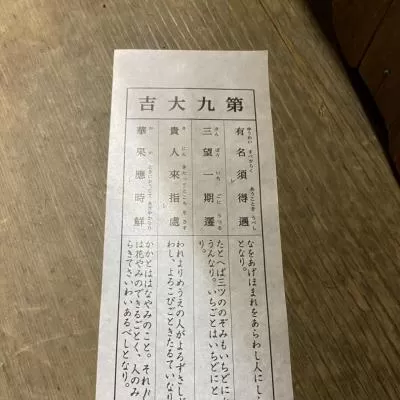 第九大吉
有名須得遇
三望一期遷
貴人來指處
華果應時鮮
なをあげほまれをあらわし人にし
となり。
たとへば三ツののぞみもいちどに
うんなり。いちごとはいちどにと
り。
われよりめうえの人がよろずさしど
わし、よろこびごときたるていなり
かかとははなやみのこと。それハ
は花やみのできるごとく、人のみ
らきてさいわいあるべしとなり。